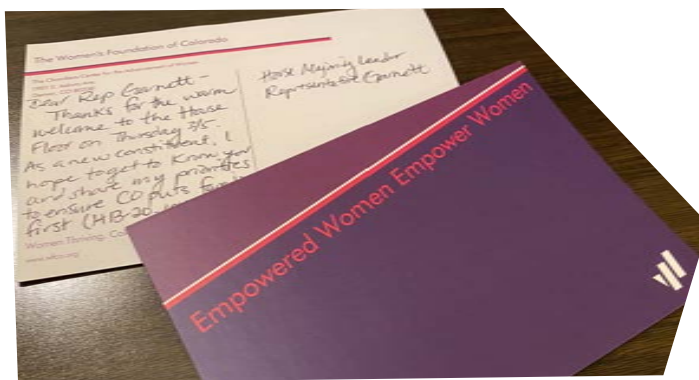 The Women's Foundation of Colorado
The Chambers Center for the Advancement of Women
Denver, CO 80208
Dear Rep Garnett -
Thanks for the warm
welcome to the House
Floor on Thursday 3/5.
As a new constituent, I
hope to get to know you
and share my priorities
to ensure CO puts
first (HB-20-
Women Thriving.
www.wfco.org
House Majority Leader
Representative Garnett
Empowered Women Empower Women